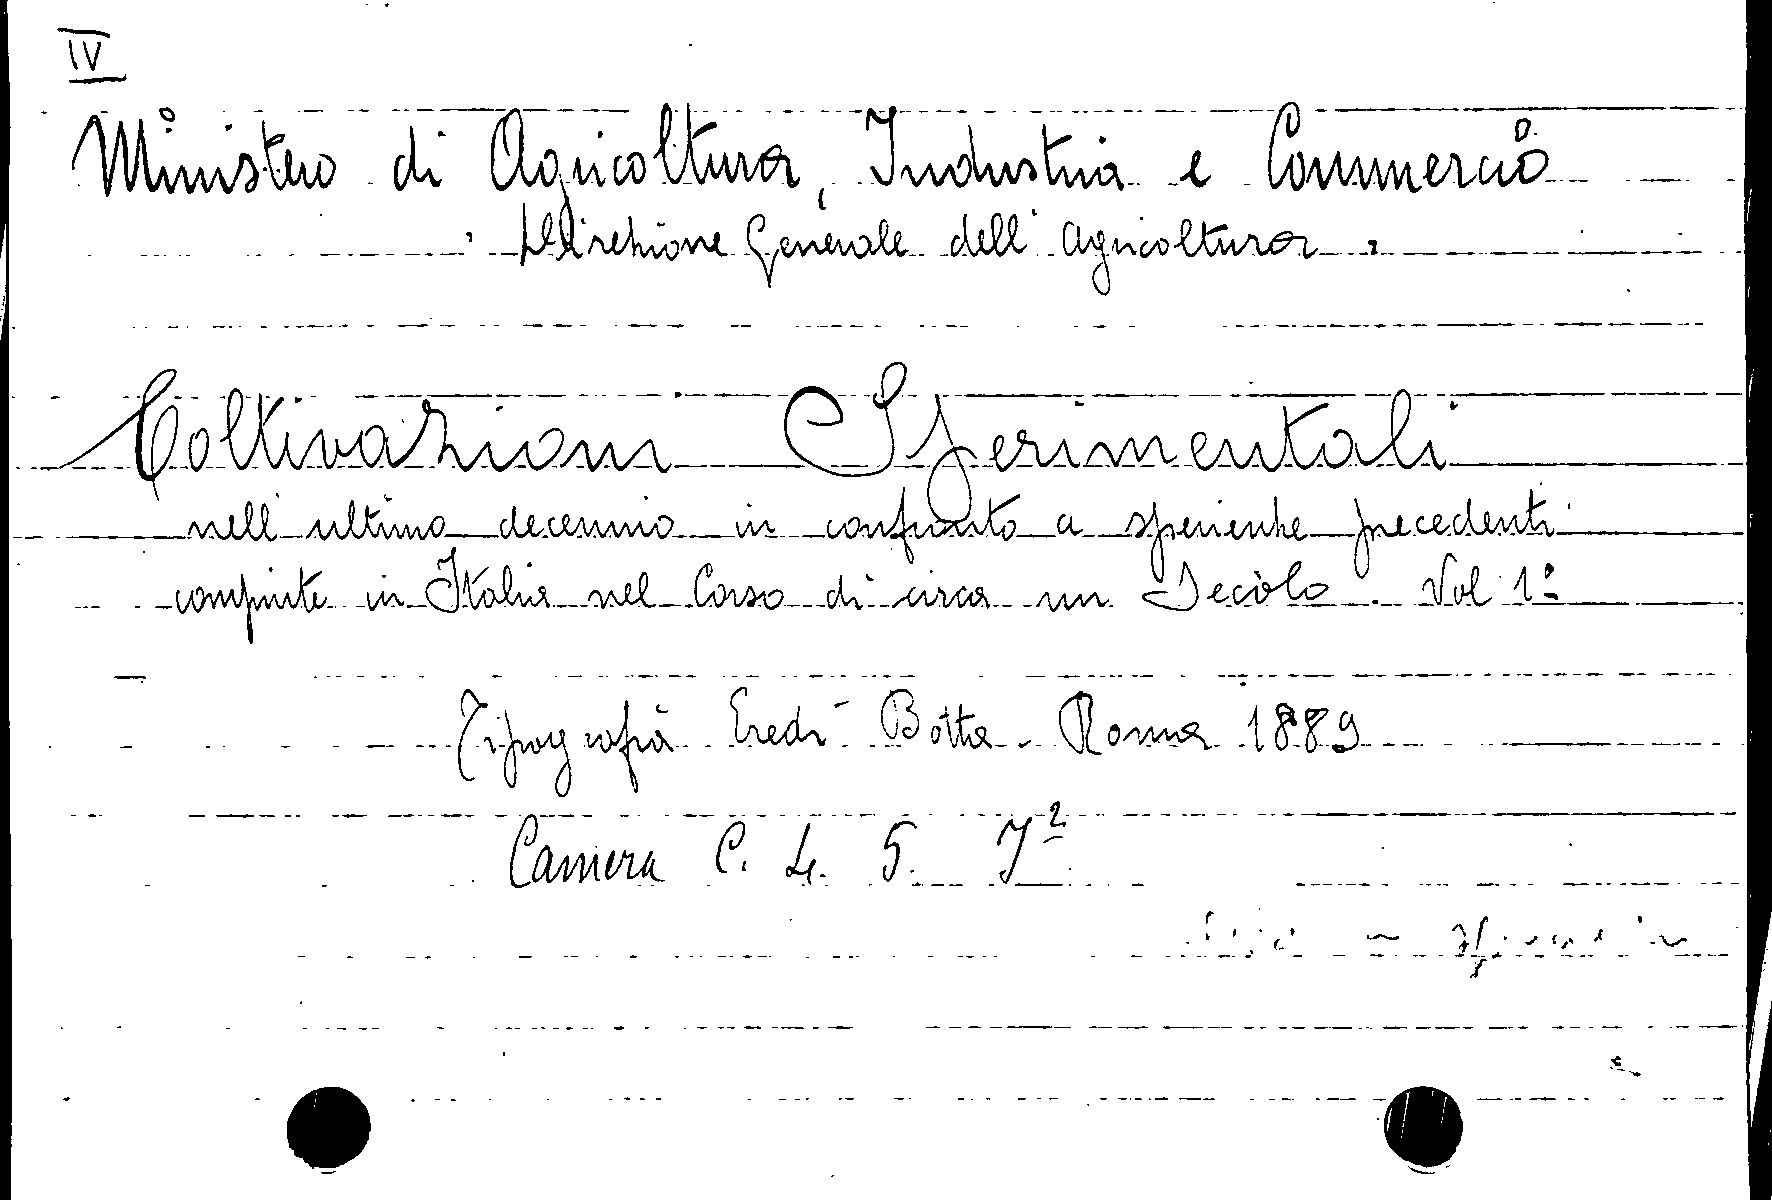 IV
Ministero di Agricoltura, Industria e Commercio
Direzione Generale dell' Agricoltura.
Coltivazioni Sperimentali
nell' ultimo decennio in confronto a sperienze precedenti
compiute in Italia nel Corso di circa un Secolo. Vol 1º
Tipografia Eredi Botta - Roma 1889
Camera C. 4. 5. 7²